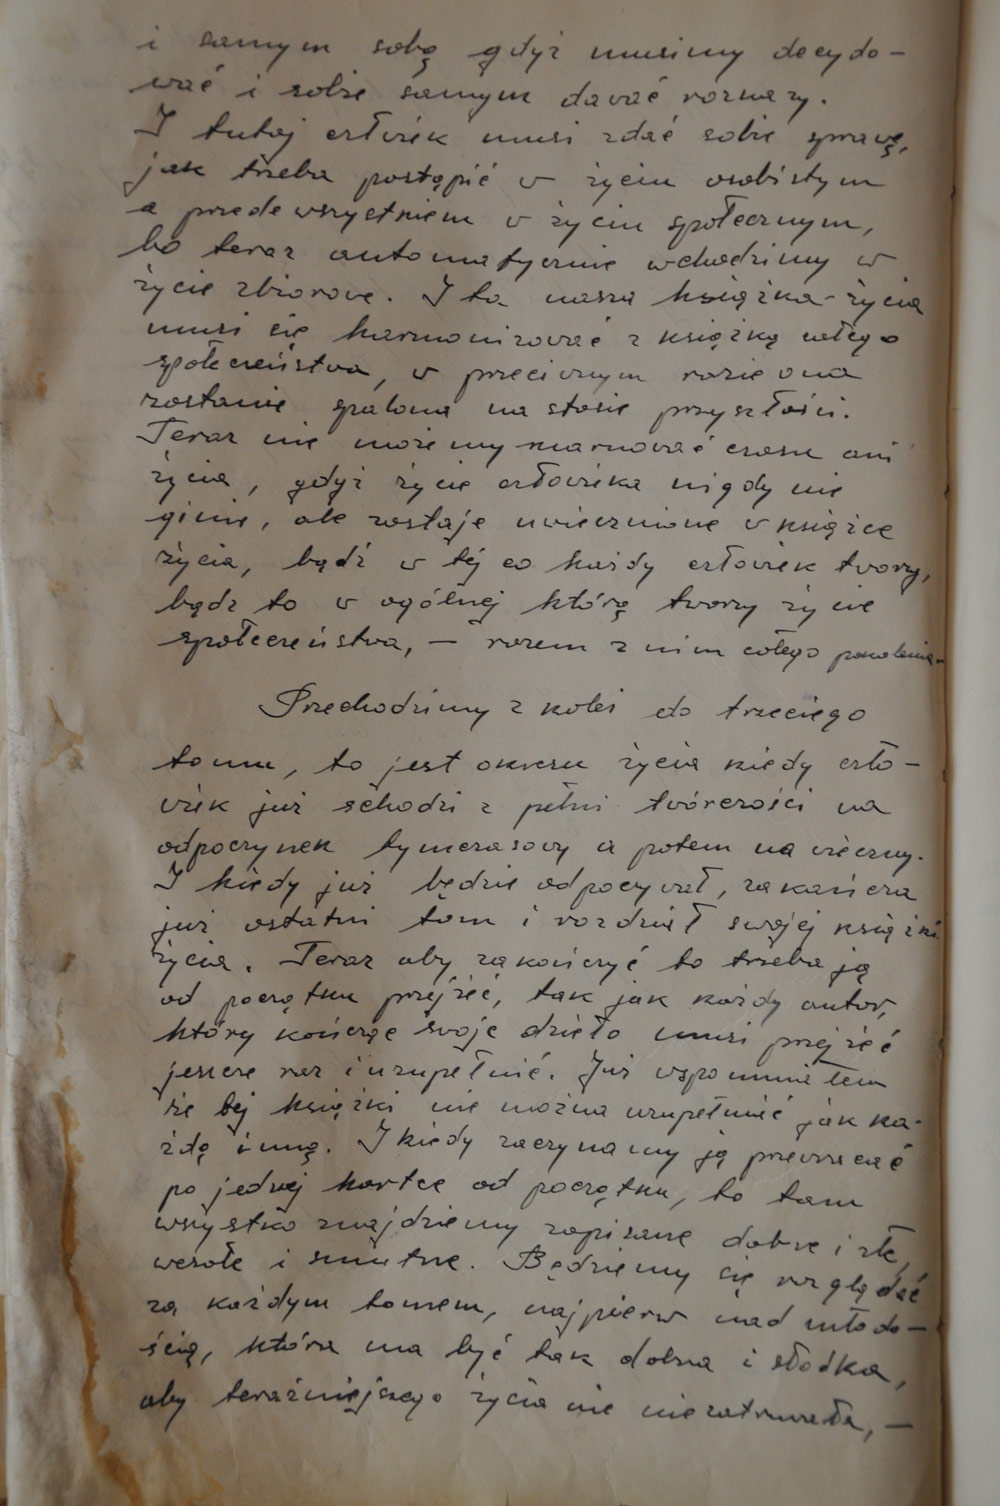 i samym sobą gdyż musimy decydo-
wać i sobie samym dawać rozkazy.
I tutaj człowiek musi zdać sobie sprawę,
jak trzeba postąpić w życiu osobistym
a przede wszystkiem w życiu społecznym,
bo teraz automatycznie wchodzimy w
życie zbiorowe. I ta nasza książka życia
musi się harmonizować z książką całego
społeczeństwa, w przeciwnym razie ona
zostanie spalona na stosie przyszłości.
Teraz nie możemy marnować czasu ani
życia, gdyż życie człowieka nigdy nie
ginie, ale zostaje uwiecznione w książce
życia, bądź w tej co każdy człowiek tworzy,
bądz to w ogólnej którą tworzy życie
społeczeństwa, — razem z nim całego pokolenia-
Przechodzimy z kolei do trzeciego
tomu, to jest okresu życia kiedy czło-
wiek już schodzi z pełni twórczości na
odpoczynek tymczasowy a potem na wieczny.
I kiedy już będzie odpoczywał, zakańcza
już ostatni tom i rozdział swojej książki
życia. Teraz aby zakończyć to trzeba ją
od początku przejżeć, tak jak każdy autor,
który kończąc swoje dzieło musi przejżeć
jeszcze raz i uzupełnić. Już wspomniałem
że tej książki nie można uzupełnić jak ka-
żdą inną. I kiedy zaczynamy ją przewracać
po jednej kartce od początku, to tam
wszystko znajdziemy zapisane dobre i złe,
wesołe i smutne. Będziemy się rozglądać
za każdym tomem, najpierw nad młodo-
ścią, która ma być tak dobra i słodka,
aby teraźniejszego życia nie niezatruwała, —